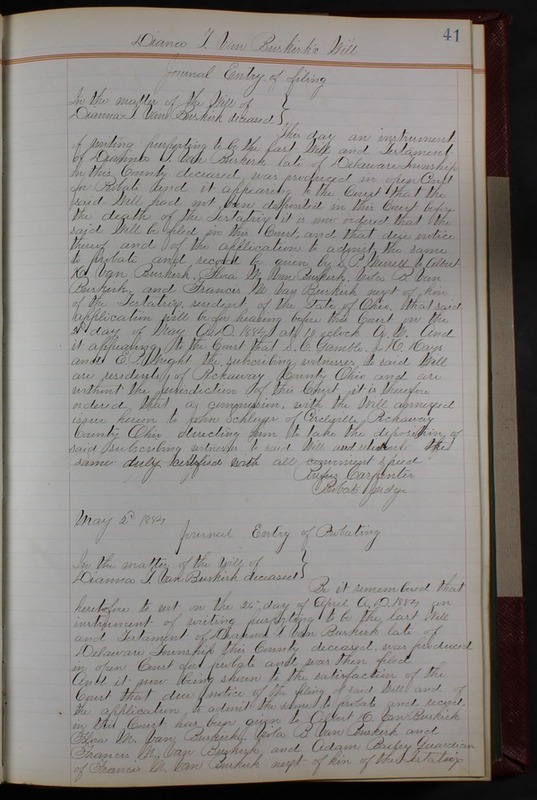 41
Dianna T. Van Burkirk's Will
Journal Entry of filing
In the matter of the Will of }
Dianna T. Van Burkirk deceased }
This day an instrument
of writing purporting to be the last Will and Testament
of Dianna T. Van Burkirk late of Delaware Township
in this County deceased, was produced in open Court
for Probate And it appearing to the Court that the
said Will had not been deposited in this Court before
the death of the Testatrix it is now ordered that the
said Will be filed in this Court, and that due notice
thereof and of the application to admit the same
to probate and record be given by to
Van Burkirk, Flora M. Van Burkirk, B. Van
Burkirk, and Francis M. Van Burkirk next of kin
of the Testatrix resident of the State of Ohio, that said
application will be for hearing before this Court on the
day of May A.D. 1884 at 10 oclock A.M. And
it appearing to the Court that S. C. Gamble, Hays
and E. P. Wright the subscribing witnesses to said Will
are residents of Pickaway County Ohio and are
without the jurisdiction of this Court it is therefore
ordered that a commission, with the Will annexed
issue herein to John Schleyer of Circleville, Pickaway
County Ohio directing him to take the deposition of
said subscribing witnesses to said Will and return the
same duly certified with all convenient speed
Carpenter
Probate Judge
May 2d 1884
Journal Entry of Probating
In the matter of the Will of }
Dianna T. Van Burkirk deceased }
Be it remembered that
heretofore to wit, on the day of April A.D. 1884 an
instrument of writing purporting to be the last Will
and Testament of Dianna T. Van Burkirk late of
Delaware Township this County deceased, was produced
in open Court for probate and was then filed
And it now being shown to the satisfaction of the
Court that due notice of the filing of said Will and of
the application to admit the same to probate and record
in this Court has been given to Van Burkirk
Flora M. Van Burkirk, B. Van Burkirk and
Francis M. Van Burkirk, and Adam Guardian
of Francis M. Van Burkirk next of kin of the Testatrix